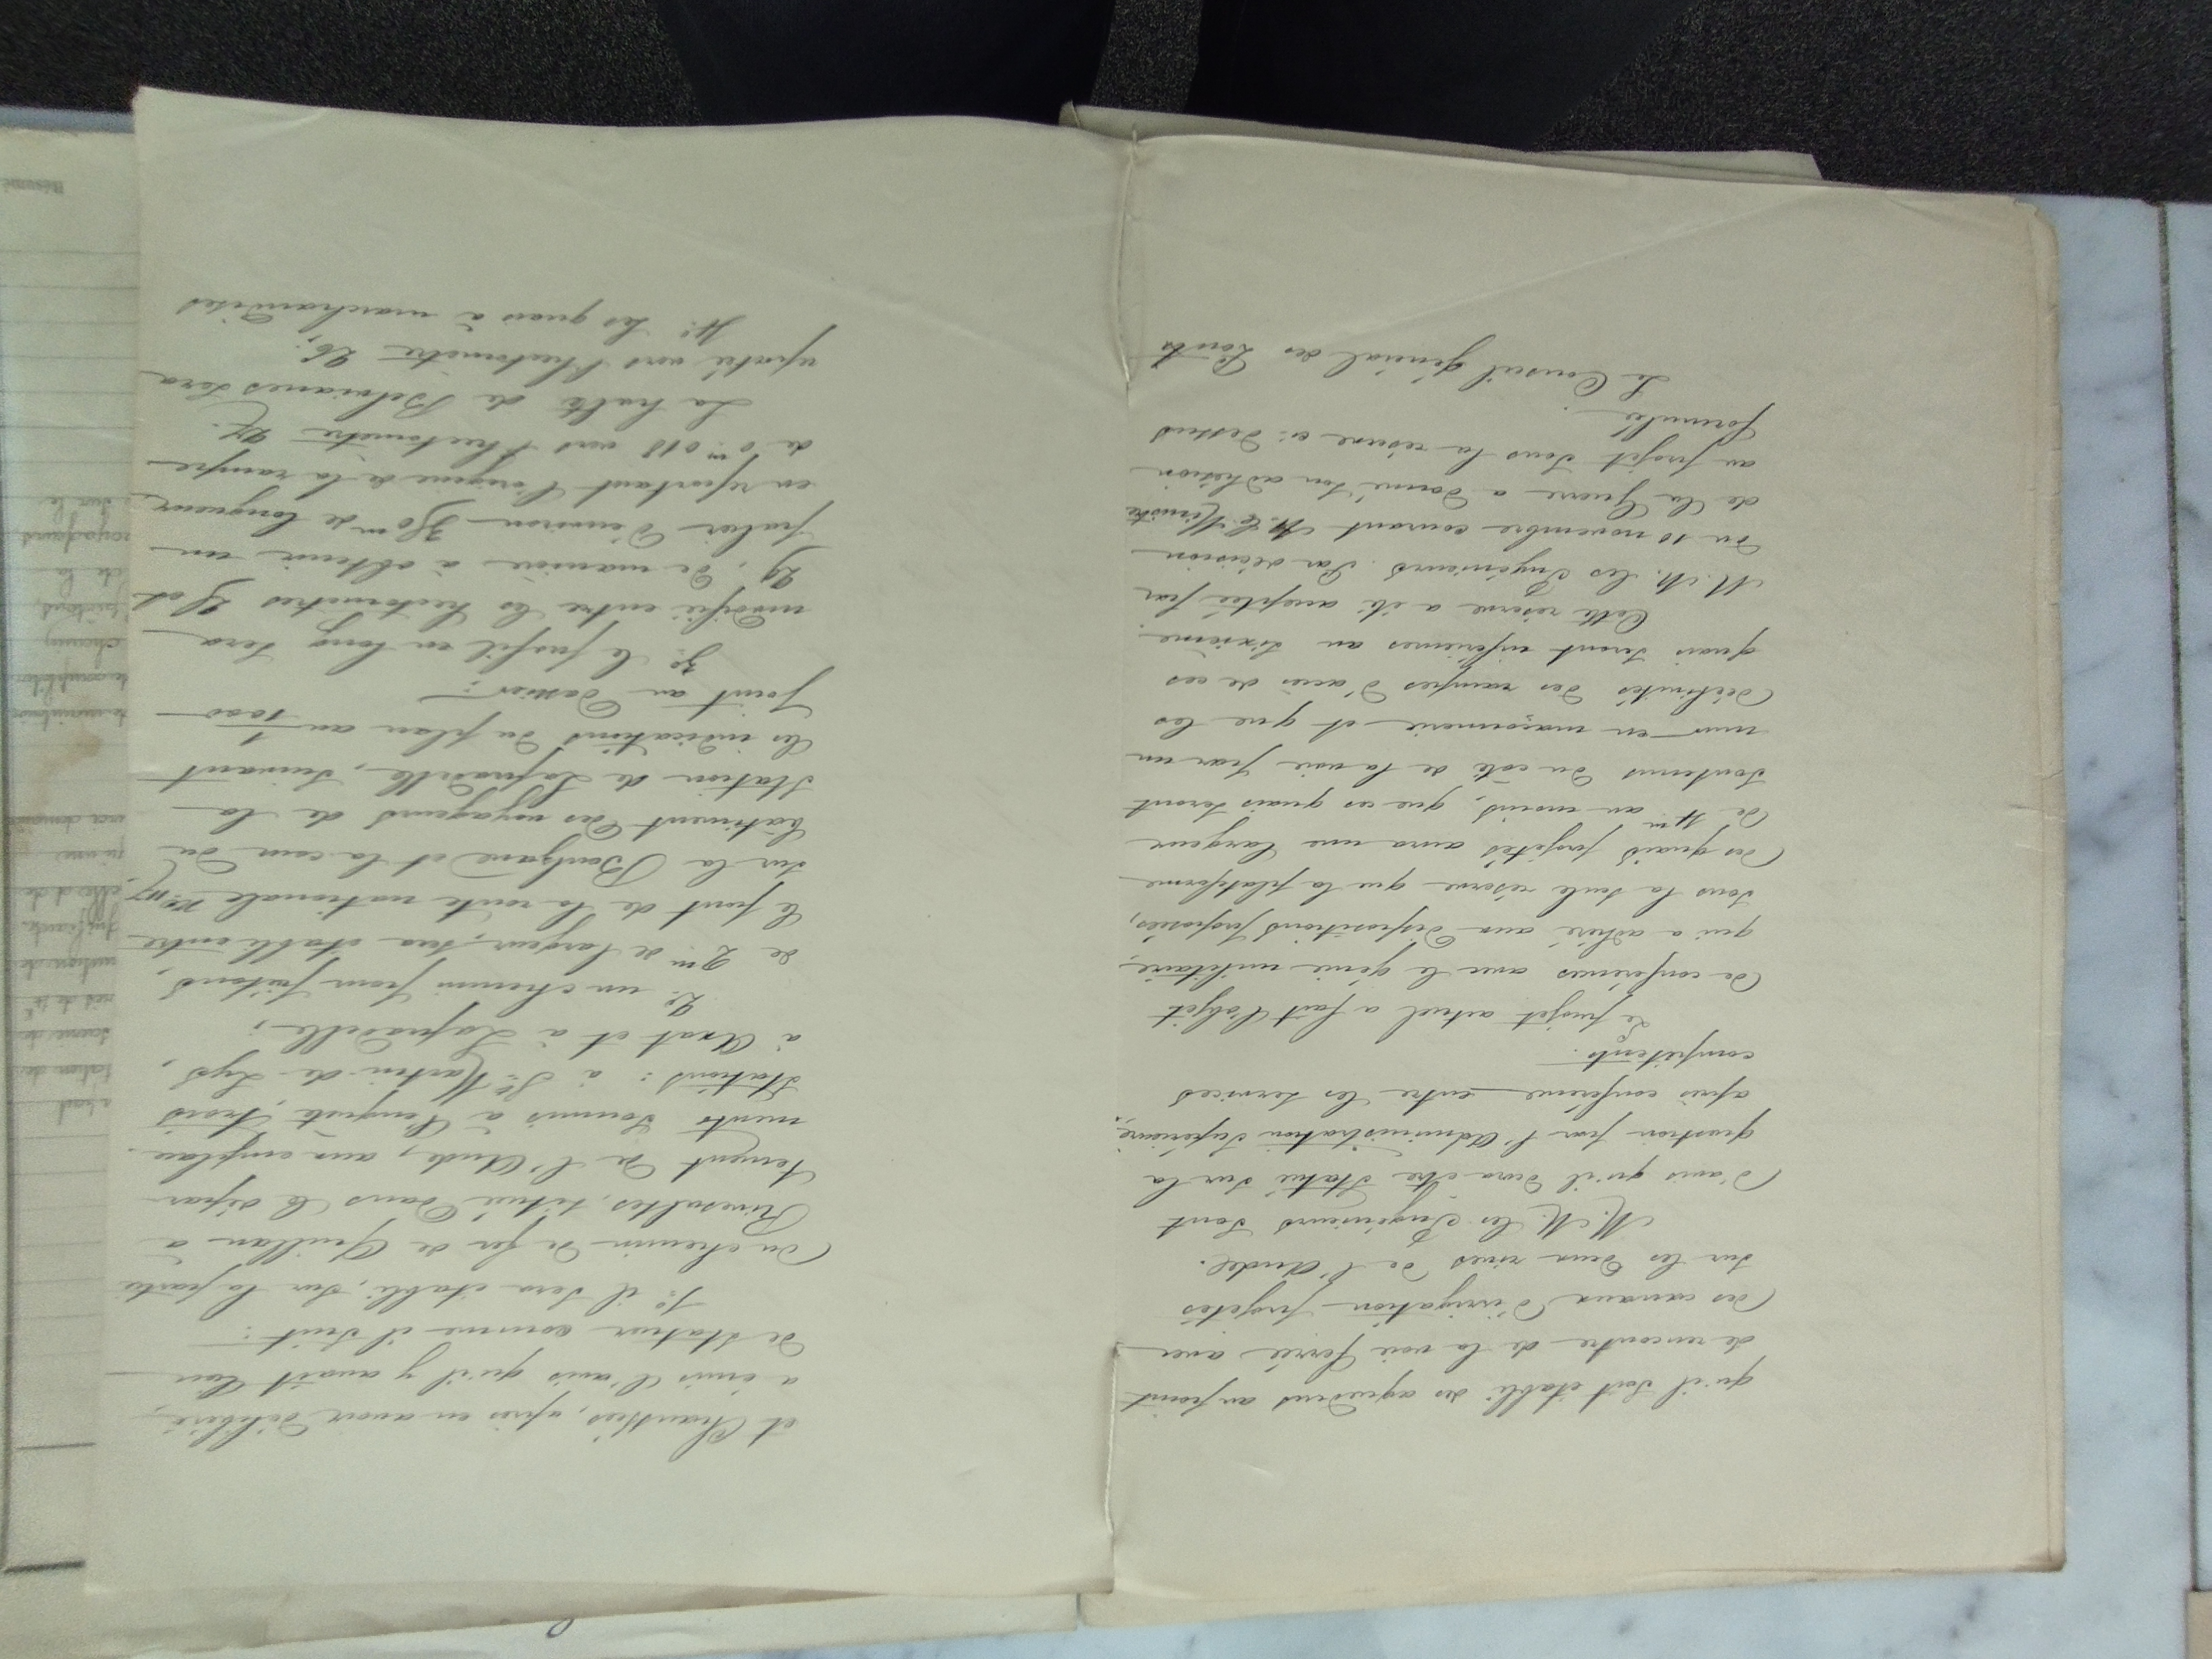 qu'il soit établi des aqueducs au point
de rencontre de la voie ferrée avec
des canaux d'irrigation projetés
sur les deux rives de l'Aude.
M. M. les Ingénieurs sont
d'avis qu'il devra être statué sur la
question par l'Administration Supérieure,
après conférence entre les services
compétents.
Le projet actuel a fait l'objet
de conférences avec le génie militaire,
qui a adhéré aux dispositions proposées,
sous la seule réserve que la plateforme
des quais projetés aura une largeur
de 4m au moins, que ces quais seront
soutenus du côté de la voie par un
mur en maçonnerie et que les
déclivités des rampes d'accès de ces
quais seront inférieures au sixième.
Cette réserve a été acceptée par
M. M. les Ingénieurs. Par décision
du 10 novembre courant M. le Ministre
de la Guerre a donné son adhésion
au projet sous la réserve ci-dessus
formulée.
Le Conseil général des Ponts
et Chaussées, après en avoir délibéré,
a émis l'avis qu'il y avait lieu
de statuer comme il suit :
1º il sera établi, sur la partie
du chemin de fer de Quillan à
Rivesaltes, située dans le dépar-
tement de l'Aude, aux emplace-
ments soumis à l'enquête, trois
stations : à St Martin-de-Lys,
à Axat et à Lapradelle ;
2º un chemin pour piétons,
de 2m de largeur, sera établi entre
le pont de la route nationale nº 117,
sur la Boulzane et la cour du
bâtiment des voyageurs de la
station de Lapradelle, suivant
les indications du plan au 1/1000
joint au dossier ;
3º le profil en long sera
modifié entre les hectomètres 25 et
29, de manière à obtenir un
palier d'environ 350m de longueur
en reportant l'origine de la rampe
de 0m 018 vers l'hectomètre 27.
La halte de Belvianes sera
reportée vers l'hectomètre 26 ;
4º Les quais à marchandises
tation de
de la
sur le
Résumé